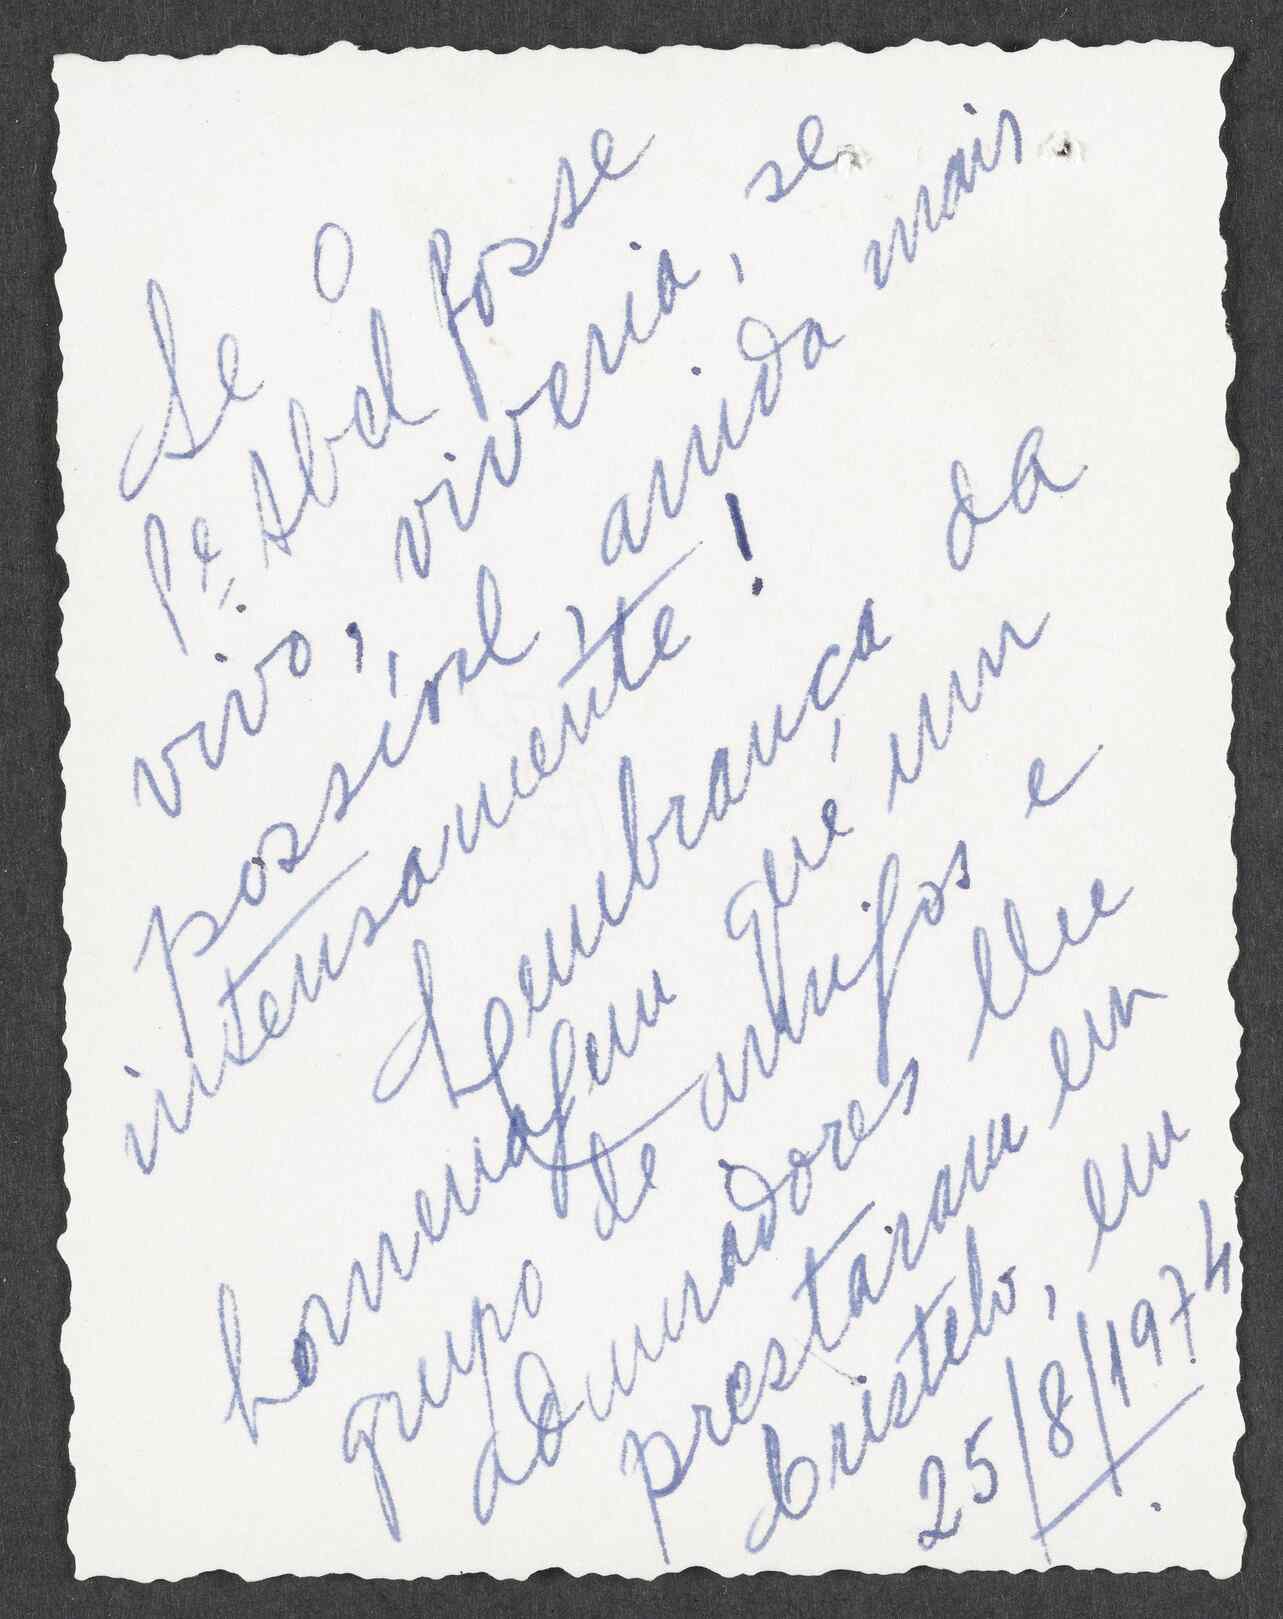 Se o
Pe. Abel fosse
vivo, viveria, se
possível, ainda mais
intensamente!
Lembrança da
homenagem que um
grupo de amigos e
admiradores lhe
prestaram em
Cristelo, em
25/8/1974.